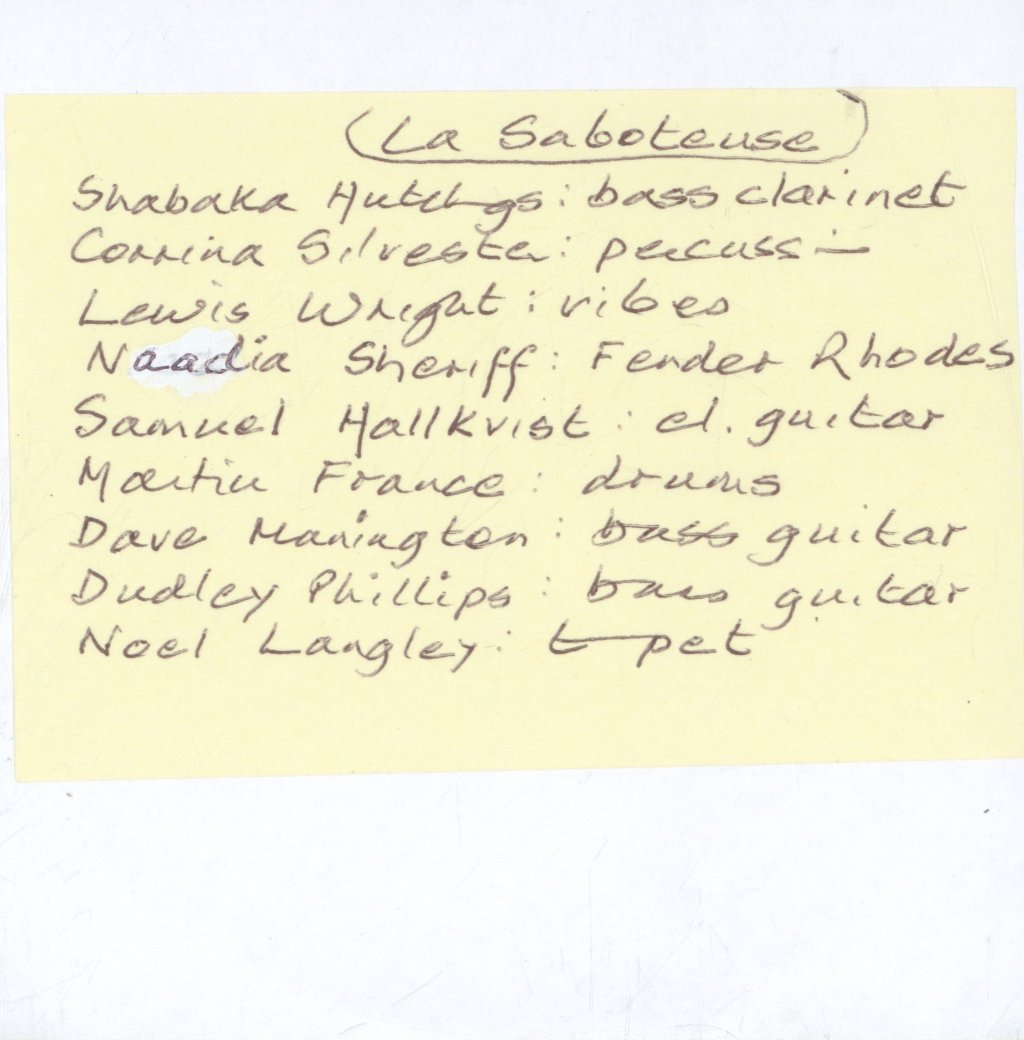 La Saboteuse
Shabaka Hutchings: bass clarinet
Corrina Silvester: percussion
Lewis Wright: vibes
Naadia Sheriff: Fender Rhodes
Samuel Hallkvist: el. guitar
Martin France: drums
Dave Manington: bass guitar
Dudley Phillips: bass guitar
Noel Langley: t—pet